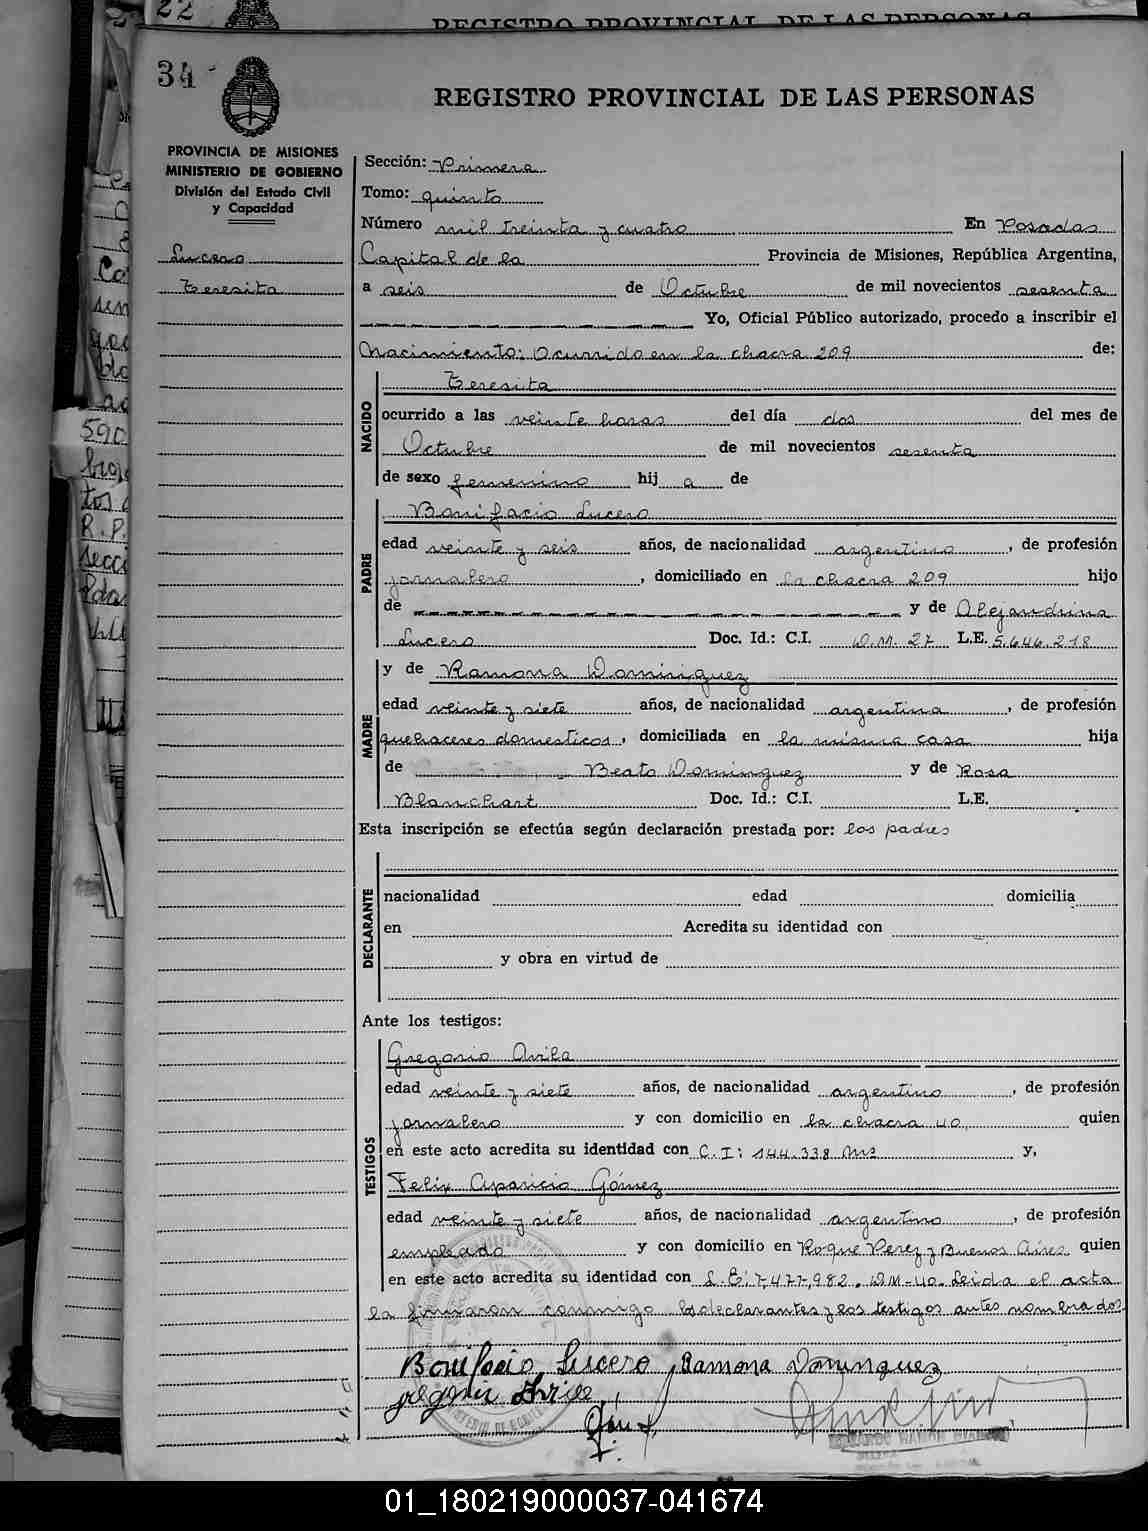 22
REGISTRO PROVINCIAL DE LAS PERSONAS
34 -
REGISTRO PROVINCIAL DE LAS PERSONAS
PROVINCIA DE MISIONES
MINISTERIO DE GOBIERNO
División del Estado Civil
y Capacidad
Lucero
Teresita
Sección: Primera
Tomo: quinto
Número mil treinta y cuatro En Posadas
Capital de la Provincia de Misiones, República Argentina,
a seis de Octubre de mil novecientos sesenta
Yo, Oficial Público autorizado, procedo a inscribir el
Nacimiento: Ocurrido en la chacra 209 de:
NACIDO
Teresita
ocurrido a las veinte horas del día dos del mes de
Octubre de mil novecientos sesenta
de sexo femenino hij a de
PADRE
Bonifacio Lucero
edad veinte y seis años, de nacionalidad argentino, de profesión
jornalero, domiciliado en la chacra 209 hijo
de y de Alejandrina
Lucero Doc. Id.: C.I. D.M. 27 L.E. 5.646.218
MADRE
y de Ramona Dominiguez
edad veinte y siete años, de nacionalidad argentina, de profesión
quehaceres domesticos, domiciliada en la misma casa hija
de Beato Dominguez y de Rosa
Blanchart Doc. Id.: C.I. L.E.
Esta inscripción se efectúa según declaración prestada por: los padres
DECLARANTE
nacionalidad edad domicilia
en Acredita su identidad con
y obra en virtud de
Ante los testigos:
TESTIGOS
Gregorio Avila
edad veinte y siete años, de nacionalidad argentino, de profesión
jornalero y con domicilio en la chacra 40, quien
en este acto acredita su identidad con C.I: 144.338 Mns y,
Felix Aparicio Gómez
edad veinte y siete años, de nacionalidad argentino, de profesión
empleado y con domicilio en Roque Perez y Buenos Aires quien
en este acto acredita su identidad con L.E: 7,477,982. DM-40. Leida el acta
la firmaron conmigo los declarantes y los testigos antes nombrados
Bonifacio Lucero Ramona Dominguez
01_180219000037-041674